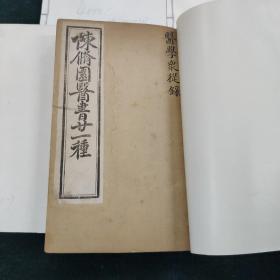 醫學衆從錄
陳脩園醫書廿一種